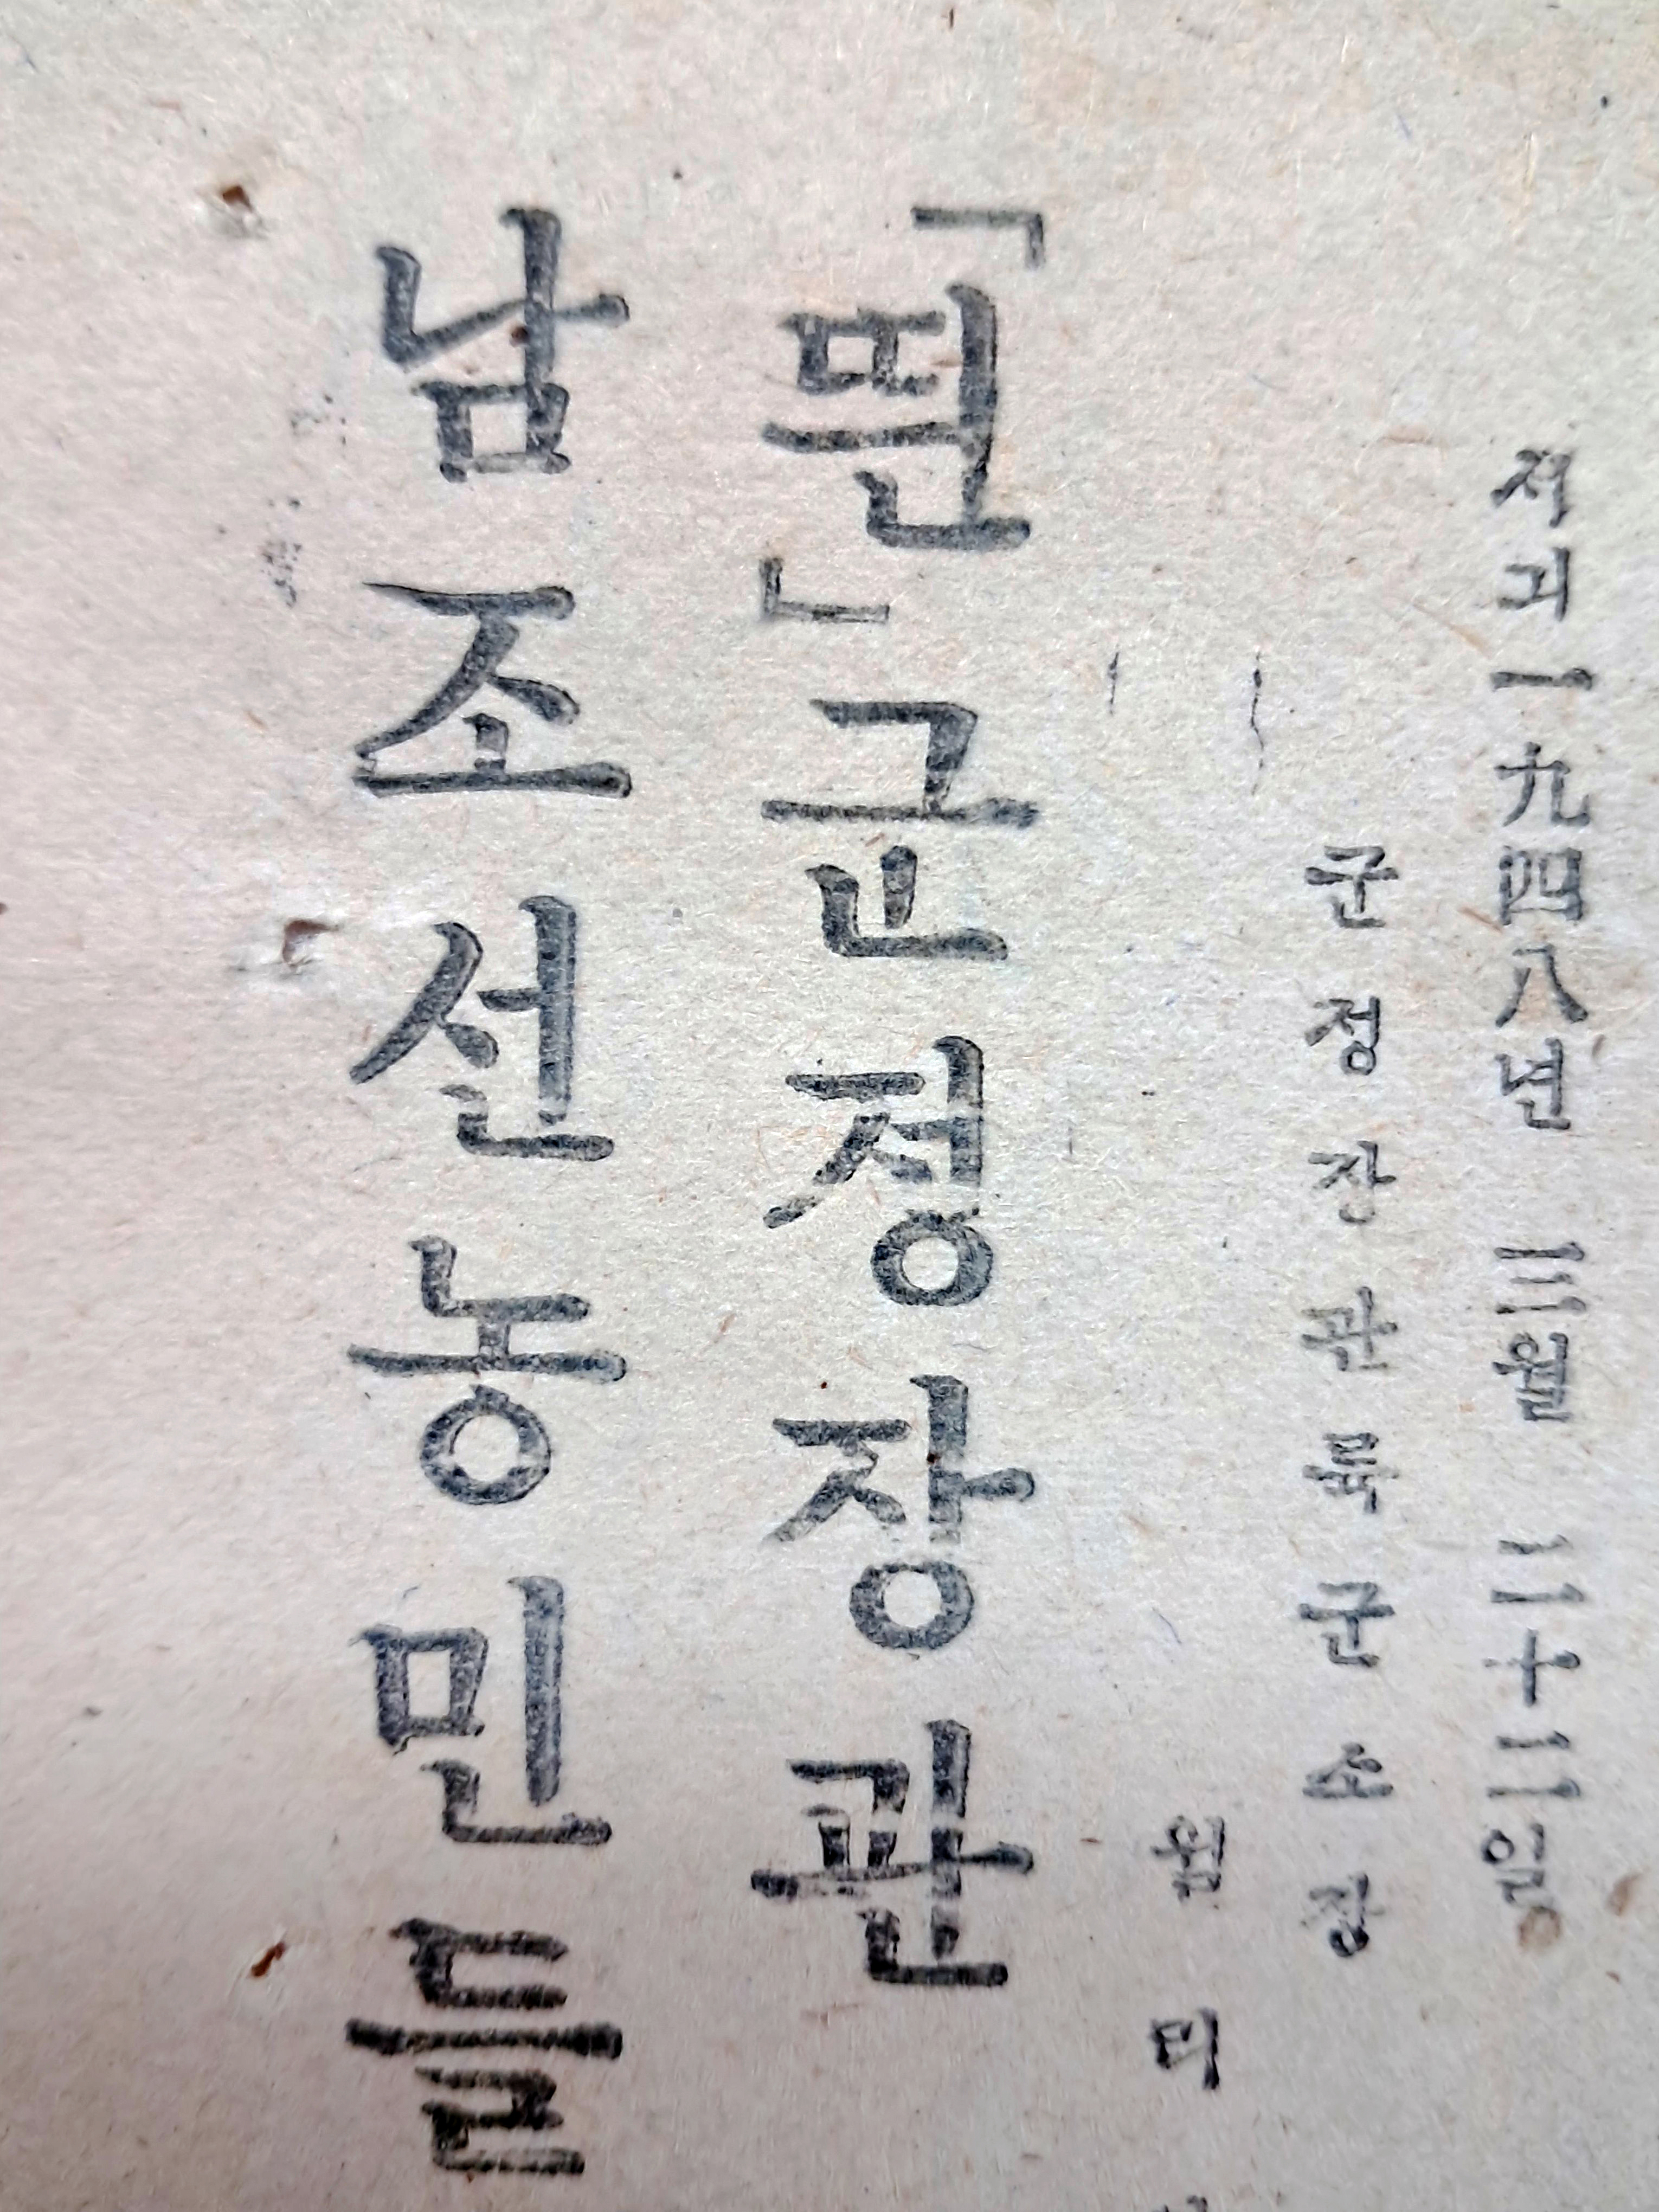 서긔一九四八년 三월 二十二일。
군정장관륙군소장
윌리
「띈」군정장관
남조선농민들